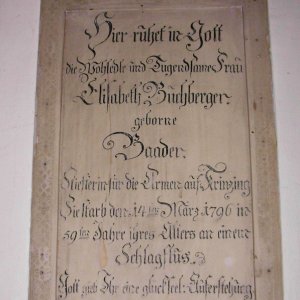 Hier rühet in Gott
die Wohledle und Tugendsame Frau
Elisabeth Buchberger
geborne
Baader.
Stifterin für die Armen auf Krinzing
Sie starb den 14ten März 1796 in
59ten Jahre ihres Alters an einem
Schlagflus.
Gott geb Ihr eine glückseel: Auferstehung